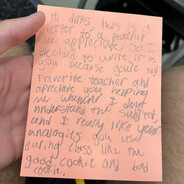 Hi dims this is a
letter to a teacher
we appreciate so I
decided to write it to
you because you're my
favorite teacher and
apreciate you helping
me whenever I don't
understand the subject,
and I really like your
analogies you used
during class like the
good cookie and bad
cookie.